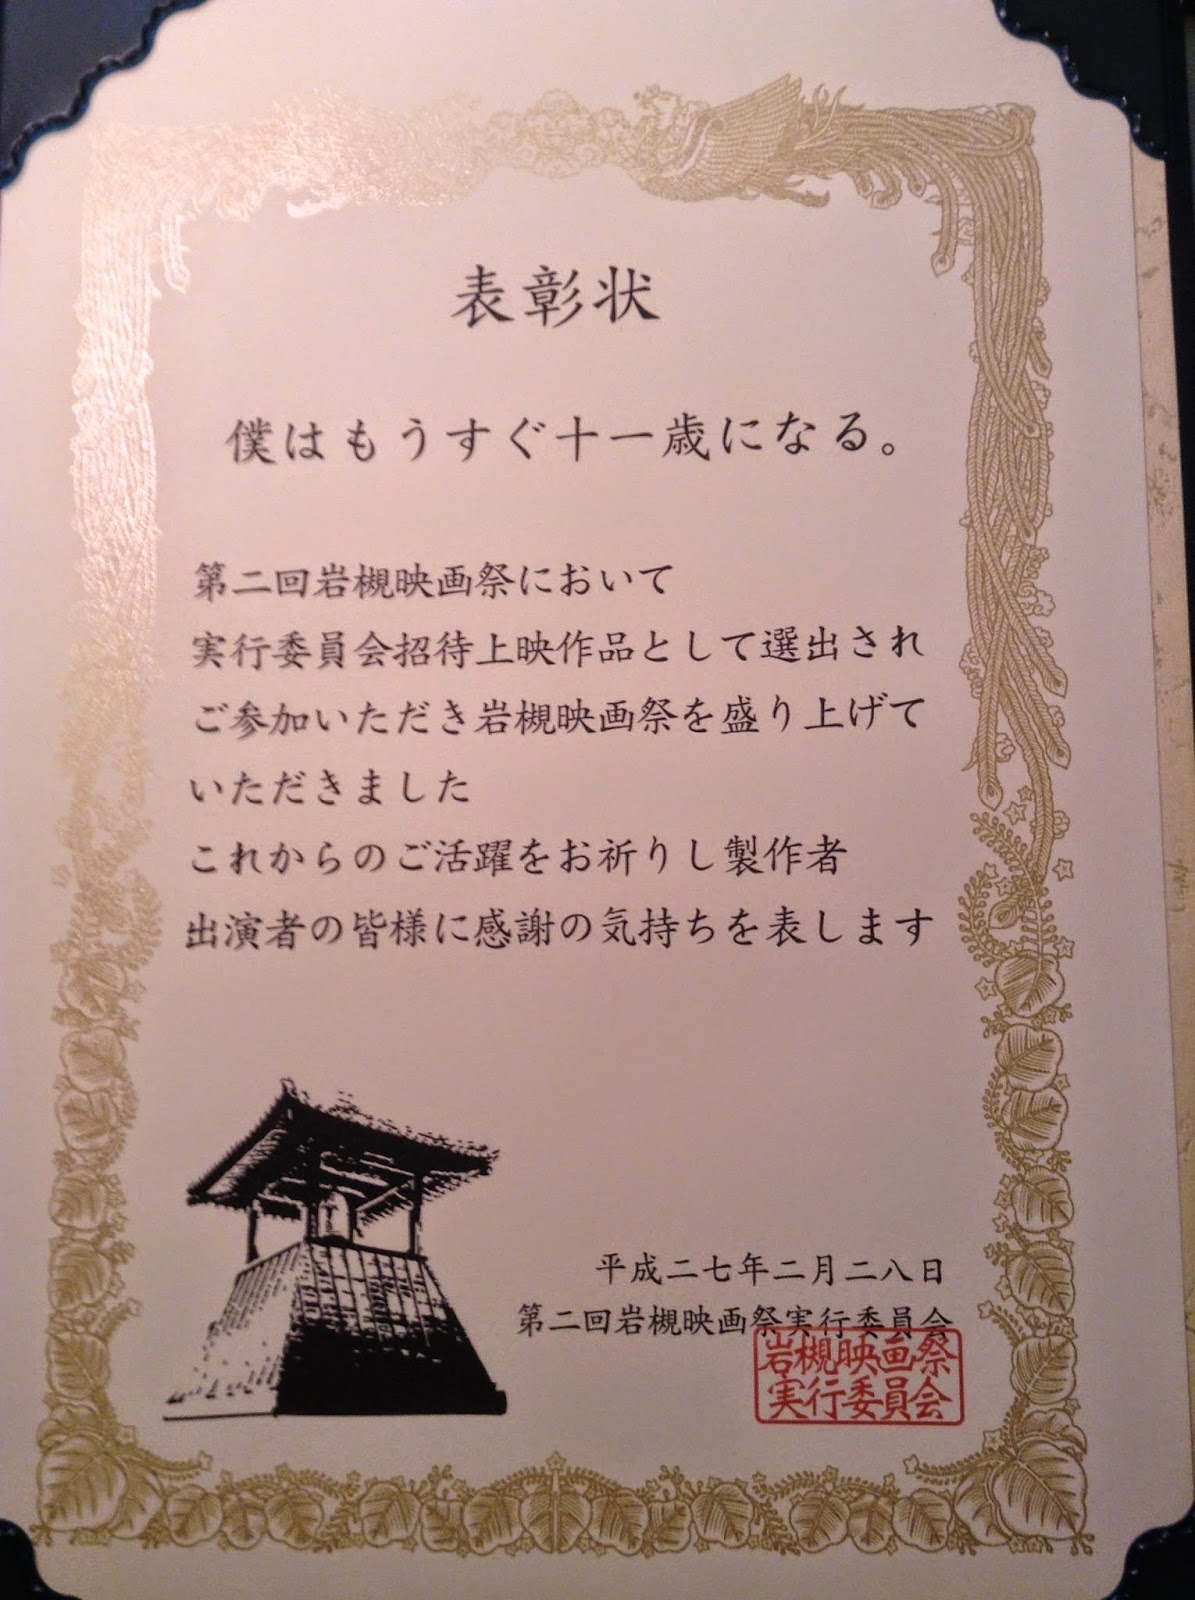 表彰状
僕はもうすぐ十一歳になる。
第二回岩槻映画祭において
実行委員会招待上映作品として選出され
ご参加いただき岩槻映画祭を盛り上げて
いただきました
これからのご活躍をお祈りし製作者
出演者の皆様に感謝の気持ちを表します
平成二七年二月二八日
第二回岩槻映画祭実行委員会
岩槻映画祭
実行委員会